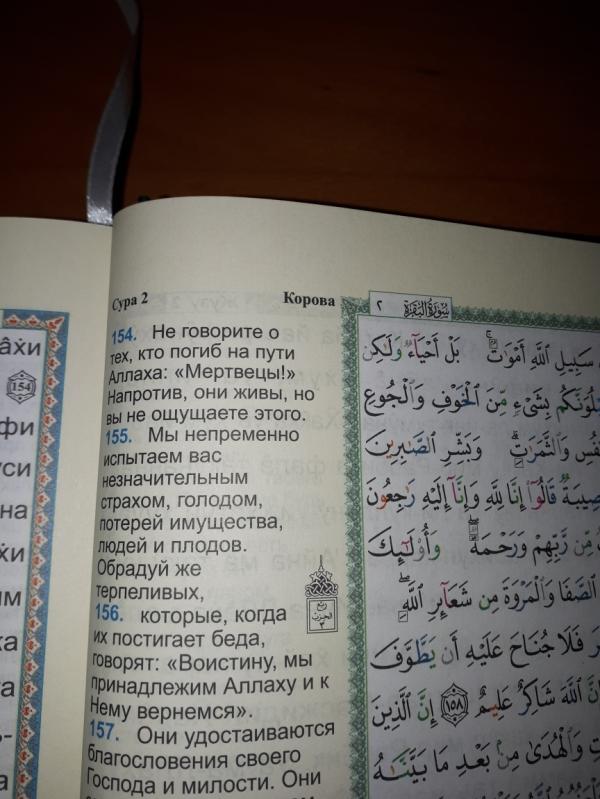 âхи
154
фи
уси
на
хи
ым
ка
та
Сура 2 Корова
154. Не говорите о
тех, кто погиб на пути
Аллаха: «Мертвецы!»
Напротив, они живы, но
вы не ощущаете этого.
155. Мы непременно
испытаем вас
незначительным
страхом, голодом,
потерей имущества,
людей и плодов.
Обрадуй же
терпеливых,
156. которые, когда
их постигает беда,
говорят: «Воистину, мы
принадлежим Аллаху и к
Нему вернемся».
157. Они удостаиваются
благословения своего
Господа и милости. Они
٢ سُورَةُ البَقَرَةِ
سَبِيلِ اللَّهِ أَمْوَاتٌ ۚ بَلْ أَحْيَاءٌ وَلَٰكِن
بِشَيْءٍ مِّنَ الْخَوْفِ وَالْجُوعِ
وَالثَّمَرَاتِ ۗ وَبَشِّرِ الصَّابِرِينَ
قَالُوا إِنَّا لِلَّهِ وَإِنَّا إِلَيْهِ رَاجِعُونَ
مِّن رَّبِّهِمْ وَرَحْمَةٌ ۖ وَأُولَٰئِكَ
الصَّفَا وَالْمَرْوَةَ مِن شَعَائِرِ اللَّهِ ۖ
فَلَا جُنَاحَ عَلَيْهِ أَن يَطَّوَّفَ
اللَّهَ شَاكِرٌ عَلِيمٌ ١٥٨ إِنَّ الَّذِينَ
وَالْهُدَىٰ مِن بَعْدِ مَا بَيَّنَّاهُ
ربع
الحزب
٣